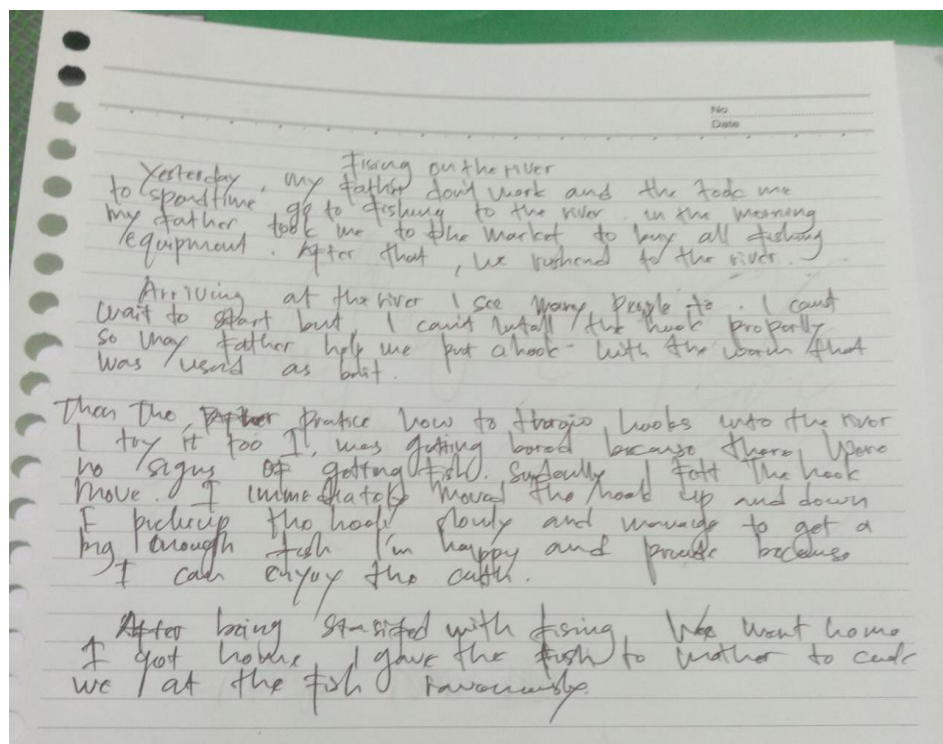 No
Date
Fising on the river
Yesterday, my father don't work and the took me
to spend time go to fishing to the river. in the morning
my father took me to the market to buy all fishing
equipment. After that, we rushend to the river.
Arriving at the river I see many people to. I cant
wait to start but, I can't install the hook properlly
so may father help me put a hook with the worm that
was used as bait.
Then the, pratice how to hooks into the river
I try it too I, was getting bored because there, were
no signs of getting fish. Suddenly I felt The hook
move. I immediately moved the hook up and down
I pickup the hook slowly and manage to get a
big enough fish I'm happy and proude because
I can enjoy the cath.
After being with fising, We want home
I got home I gave the fish to mother to
we at the fish